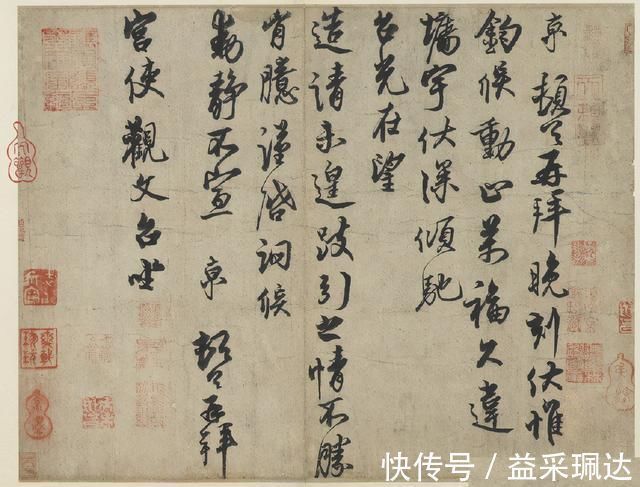 京 頓首再拜晚刻伏惟
鈞候動止萬福久違
墻宇伏深傾馳
台光在望
造請未遑跂引之情不勝
胷臆謹啓詗候
動静不宣 京 頓首再拜
宮使觀文台坐
快传号／益采珮达